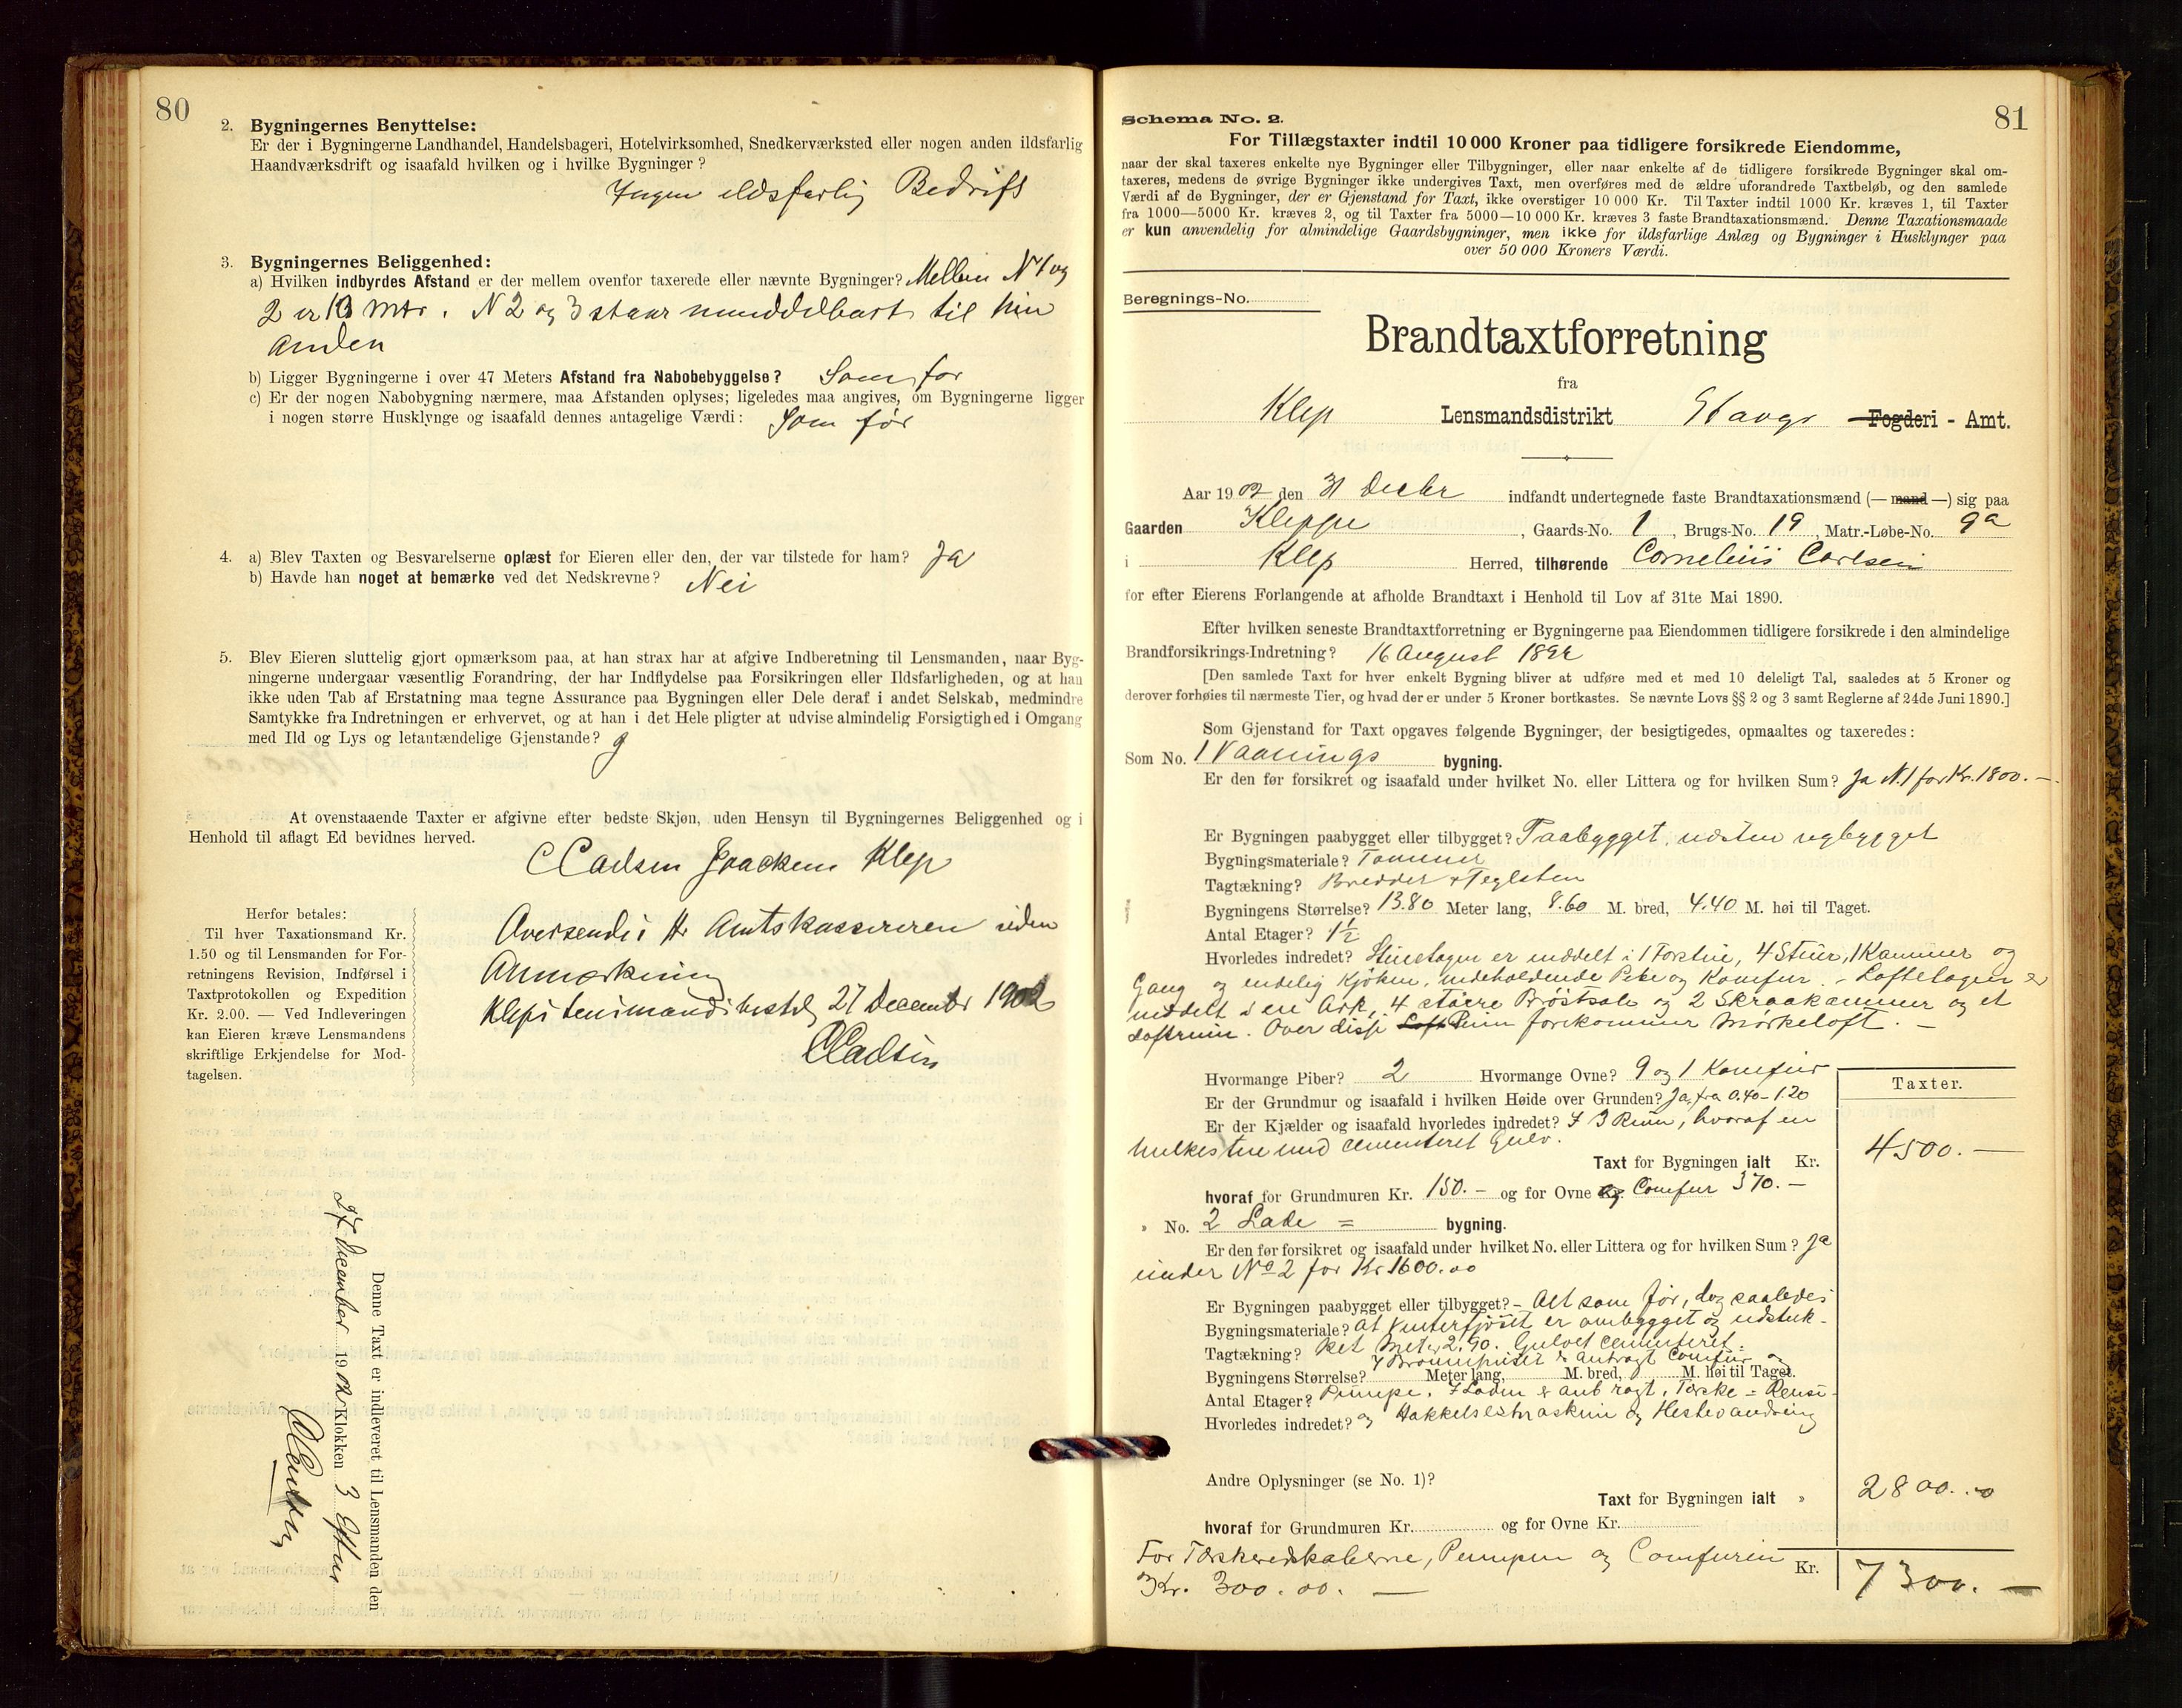 80
2. Bygningernes Benyttelse:
Er der i Bygningerne Landhandel, Handelsbageri, Hotelvirksomhed, Snedkerværksted eller nogen anden ildsfarlig
Haandværksdrift og isaafald hvilken og i hvilke Bygninger?
Ingen ildsfarlig Bedrift
3. Bygningernes Beliggenhed:
a) Hvilken indbyrdes Afstand er der mellem ovenfor taxerede eller nævnte Bygninger? Mellem N 1 og
2 er 13 mtr. N 2 og 3 staar umiddelbart til hin
anden
b) Ligger Bygningerne i over 47 Meters Afstand fra Nabobebyggelse? Som før
c) Er der nogen Nabobygning nærmere, maa Afstanden oplyses; ligeledes maa angives, om Bygningerne ligger
i nogen større Husklynge og isaafald dennes antagelige Værdi: Som før
4. a) Blev Taxten og Besvarelserne oplæst for Eieren eller den, der var tilstede for ham? Ja
b) Havde han noget at bemærke ved det Nedskrevne? Nei
5. Blev Eieren sluttelig gjort opmærksom paa, at han strax har at afgive Indberetning til Lensmanden, naar Byg-
ningerne undergaar væsentlig Forandring, der har Indflydelse paa Forsikringen eller Ildsfarligheden, og at han
ikke uden Tab af Erstatning maa tegne Assurance paa Bygningen eller Dele deraf i andet Selskab, medmindre
Samtykke fra Indretningen er erhvervet, og at han i det Hele pligter at udvise almindelig Forsigtighed i Omgang
med Ild og Lys og letantændelige Gjenstande?
At ovenstaaende Taxter er afgivne efter bedste Skjøn, uden Hensyn til Bygningernes Beliggenhed og i
Henhold til aflagt Ed bevidnes herved.
Joackem Klep
Herfor betales:
Til hver Taxationsmand Kr.
1.50 og til Lensmanden for For-
retningens Revision, Indførsel i
Taxtprotokollen og Expedition
Kr. 2.00. — Ved Indleveringen
kan Eieren kræve Lensmandens
skriftlige Erkjendelse for Mod-
tagelsen.
Oversendes Hr Amtskassereren uden
Anmærkning
Kleps Lensmandsbestil 27 December 1902
Denne Taxt er indleveret til Lensmanden den
27 December 1902 Klokken 3 Efter
81
Schema No. 2.
For Tillægstaxter indtil 10 000 Kroner paa tidligere forsikrede Eiendomme,
naar der skal taxeres enkelte nye Bygninger eller Tilbygninger, eller naar enkelte af de tidligere forsikrede Bygninger skal om-
taxeres, medens de øvrige Bygninger ikke undergives Taxt, men overføres med de ældre uforandrede Taxtbeløb, og den samlede
Værdi af de Bygninger, der er Gjenstand for Taxt, ikke overstiger 10 000 Kr. Til Taxter indtil 1000 Kr. kræves 1, til Taxter
fra 1000—5000 Kr. kræves 2, og til Taxter fra 5000—10 000 Kr. kræves 3 faste Brandtaxationsmænd. Denne Taxationsmaade
er kun anvendelig for almindelige Gaardsbygninger, men ikke for ildsfarlige Anlæg og Bygninger i Husklynger paa
over 50 000 Kroners Værdi.
Beregnings-No.
Brandtaxtforretning
fra
Klep Lensmandsdistrikt Stavgr Fogderi - Amt.
Aar 1902 den 31 Decbr indfandt undertegnede faste Brandtaxationsmænd (— mand —) sig paa
Gaarden Kleppe, Gaards-No. 1, Brugs-No. 19, Matr.-Løbe-No. 9a
i Klep Herred, tilhørende Cornelius Carlsen
for efter Eierens Forlangende at afholde Brandtaxt i Henhold til Lov af 31te Mai 1890.
Efter hvilken seneste Brandtaxtforretning er Bygningerne paa Eiendommen tidligere forsikrede i den almindelige
Brandforsikrings-Indretning? 16 August 1892
[Den samlede Taxt for hver enkelt Bygning bliver at udføre med et med 10 deleligt Tal, saaledes at 5 Kroner og
derover forhøies til nærmeste Tier, og hvad der er under 5 Kroner bortkastes. Se nævnte Lovs §§ 2 og 3 samt Reglerne af 24de Juni 1890.]
Som Gjenstand for Taxt opgaves følgende Bygninger, der besigtigedes, opmaaltes og taxeredes:
Som No. 1 Vaanings bygning.
Er den før forsikret og isaafald under hvilket No. eller Littera og for hvilken Sum? Ja N. 1 for Kr. 1800. —
Er Bygningen paabygget eller tilbygget? Paabygget, næsten nybygget
Bygningsmateriale? Tømmer
Tagtækning? Bredder & Teglsten
Bygningens Størrelse? 13.80 Meter lang, 8.60 M. bred, 4.40 M. høi til Taget.
Antal Etager? 1½
Hvorledes indredet? Stuetagen er inddelt i 1 Forstue, 4 Stuer, 1 Kammer og
Gang og endelig Kjøken, indeholdende Peke og Komfur. - Loftetagen er
inddelt i en Ark, 4 større Brøstsale og 2 Skraakammer og et
Loftrum. Over disse Loft Rum forekommer Mørkeloft. —
Hvormange Piber? 2 Hvormange Ovne? 9 og 1 Komfur
Taxter.
Er der Grundmur og isaafald i hvilken Høide over Grunden? Ja, fra 0.40 - 1.20
Er der Kjælder og isaafald hvorledes indredet? I 3 Rum, hvoraf en
Melkestue med cementeret Gulv.
Taxt for Bygningen ialt Kr. 4500. —
hvoraf for Grundmuren Kr. 150. — og for Ovne og Comfur 370. —
» No. 2 Lade = bygning.
Er den før forsikret og isaafald under hvilket No. eller Littera og for hvilken Sum? Ja
under No 2 for Kr 1600.00
Er Bygningen paabygget eller tilbygget? - Alt som før, dog saaledes
Bygningsmateriale? At Vinterfjøset er ombygget og udstuk-
Tagtækning? ket Meter 2.90. Gulvet cementeret.
I Brønnhuset er anbragt Comfur og
Bygningens Størrelse? Meter lang, M. bred, M. høi til Taget.
Antal Etager? Pumpe. I Laden er anbragt, Tærske = Rense-
Hvorledes indredet? og Hakkelsesmaskin og Hestevandring
Andre Oplysninger (se No. 1)?
Taxt for Bygningen ialt » 2800.00
hvoraf for Grundmuren Kr. og for Ovne Kr.
For Tærskeredskaberne, Pumpen og Comfuren
Kr. 300.00. —
Kr. 7300. —